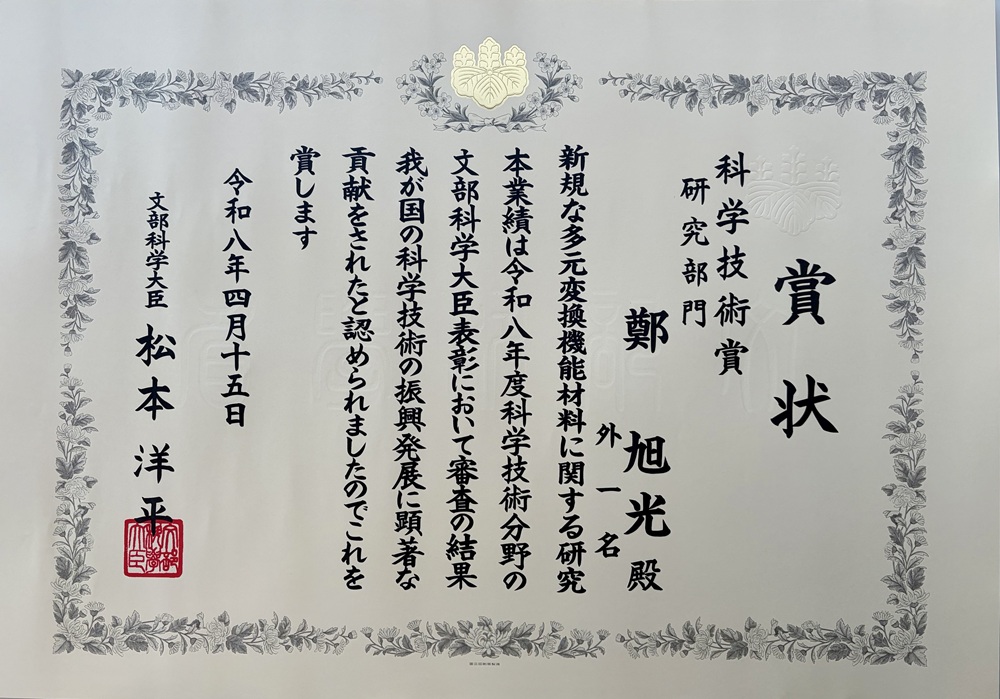 賞状
科学技術賞
研究部門
鄭 旭光 殿
外一名
新規な多元変換機能材料に関する研究
本業績は令和八年度科学技術分野の
文部科学大臣表彰において審査の結果
我が国の科学技術の振興発展に顕著な
貢献をされたと認められましたのでこれを
賞します
令和八年四月十五日
文部科学大臣 松本 洋平